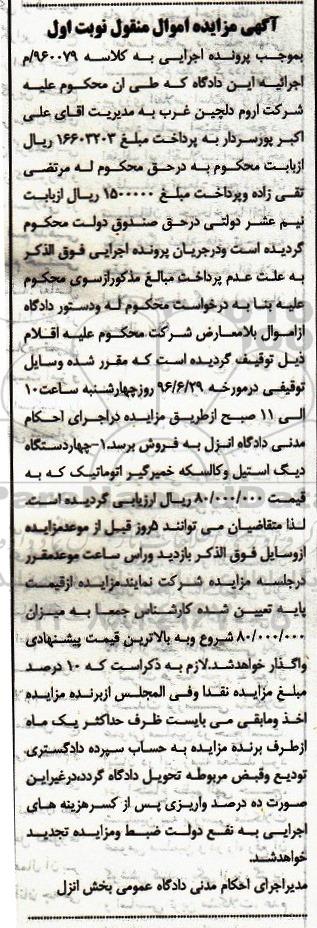 آگهی مزایده اموال منقول نوبت اول
بموجب پرونده اجرایی به کلاسه ۹۶۰۰۷۹/م
اجرائیه این دادگاه که طی ان محکوم علیه
شرکت اروم دلچین غرب به مدیریت اقای علی
اکبر پورسردار به پرداخت مبلغ ۱۶۶۰۳۲۰۳ ریال
ازبابت محکوم به درحق محکوم له مرتضی
تقی زاده وپرداخت مبلغ ۱۵۰۰۰۰۰ ریال ازبابت
نیم عشر دولتی درحق صندوق دولت محکوم
گردیده است ودرجریان پرونده اجرایی فوق الذکر
به علت عدم پرداخت مبالغ مذکورازسوی محکوم
علیه بنا به درخواست محکوم له ودستور دادگاه
ازاموال بلامعارض شرکت محکوم علیه اقلام
ذیل توقیف گردیده است که مقرر شده وسایل
توقیفی درمورخه ۹۶/۶/۲۹ روزچهارشنبه ساعت۱۰
الی ۱۱ صبح ازطریق مزایده دراجرای احکام
مدنی دادگاه انزل به فروش برسد.۱-چهاردستگاه
دیگ استیل وکالسکه خمیرگیر اتوماتیک که به
قیمت ۸۰/۰۰۰/۰۰۰ ریال ارزیابی گردیده است.
لذا متقاضیان می توانند ۵روز قبل از موعدمزایده
ازوسایل فوق الذکر بازدید وراس ساعت موعدمقرر
درجلسه مزایده شرکت نمایند.مزایده ازقیمت
پایه تعیین شده کارشناس جمعا به میزان
۸۰/۰۰۰/۰۰۰ شروع وبه بالاترین قیمت پیشنهادی
واگذار خواهدشد.لازم به ذکراست که ۱۰ درصد
مبلغ مزایده نقدا وفی المجلس ازبرنده مزایده
اخذ ومابقی می بایست ظرف حداکثر یک ماه
ازطرف برنده مزایده به حساب سپرده دادگستری
تودیع وقبض مربوطه تحویل دادگاه گردد،درغیراین
صورت ده درصد واریزی پس از کسرهزینه های
اجرایی به نفع دولت ضبط ومزایده تجدید
خواهدشد.
مدیراجرای احکام مدنی دادگاه عمومی بخش انزل